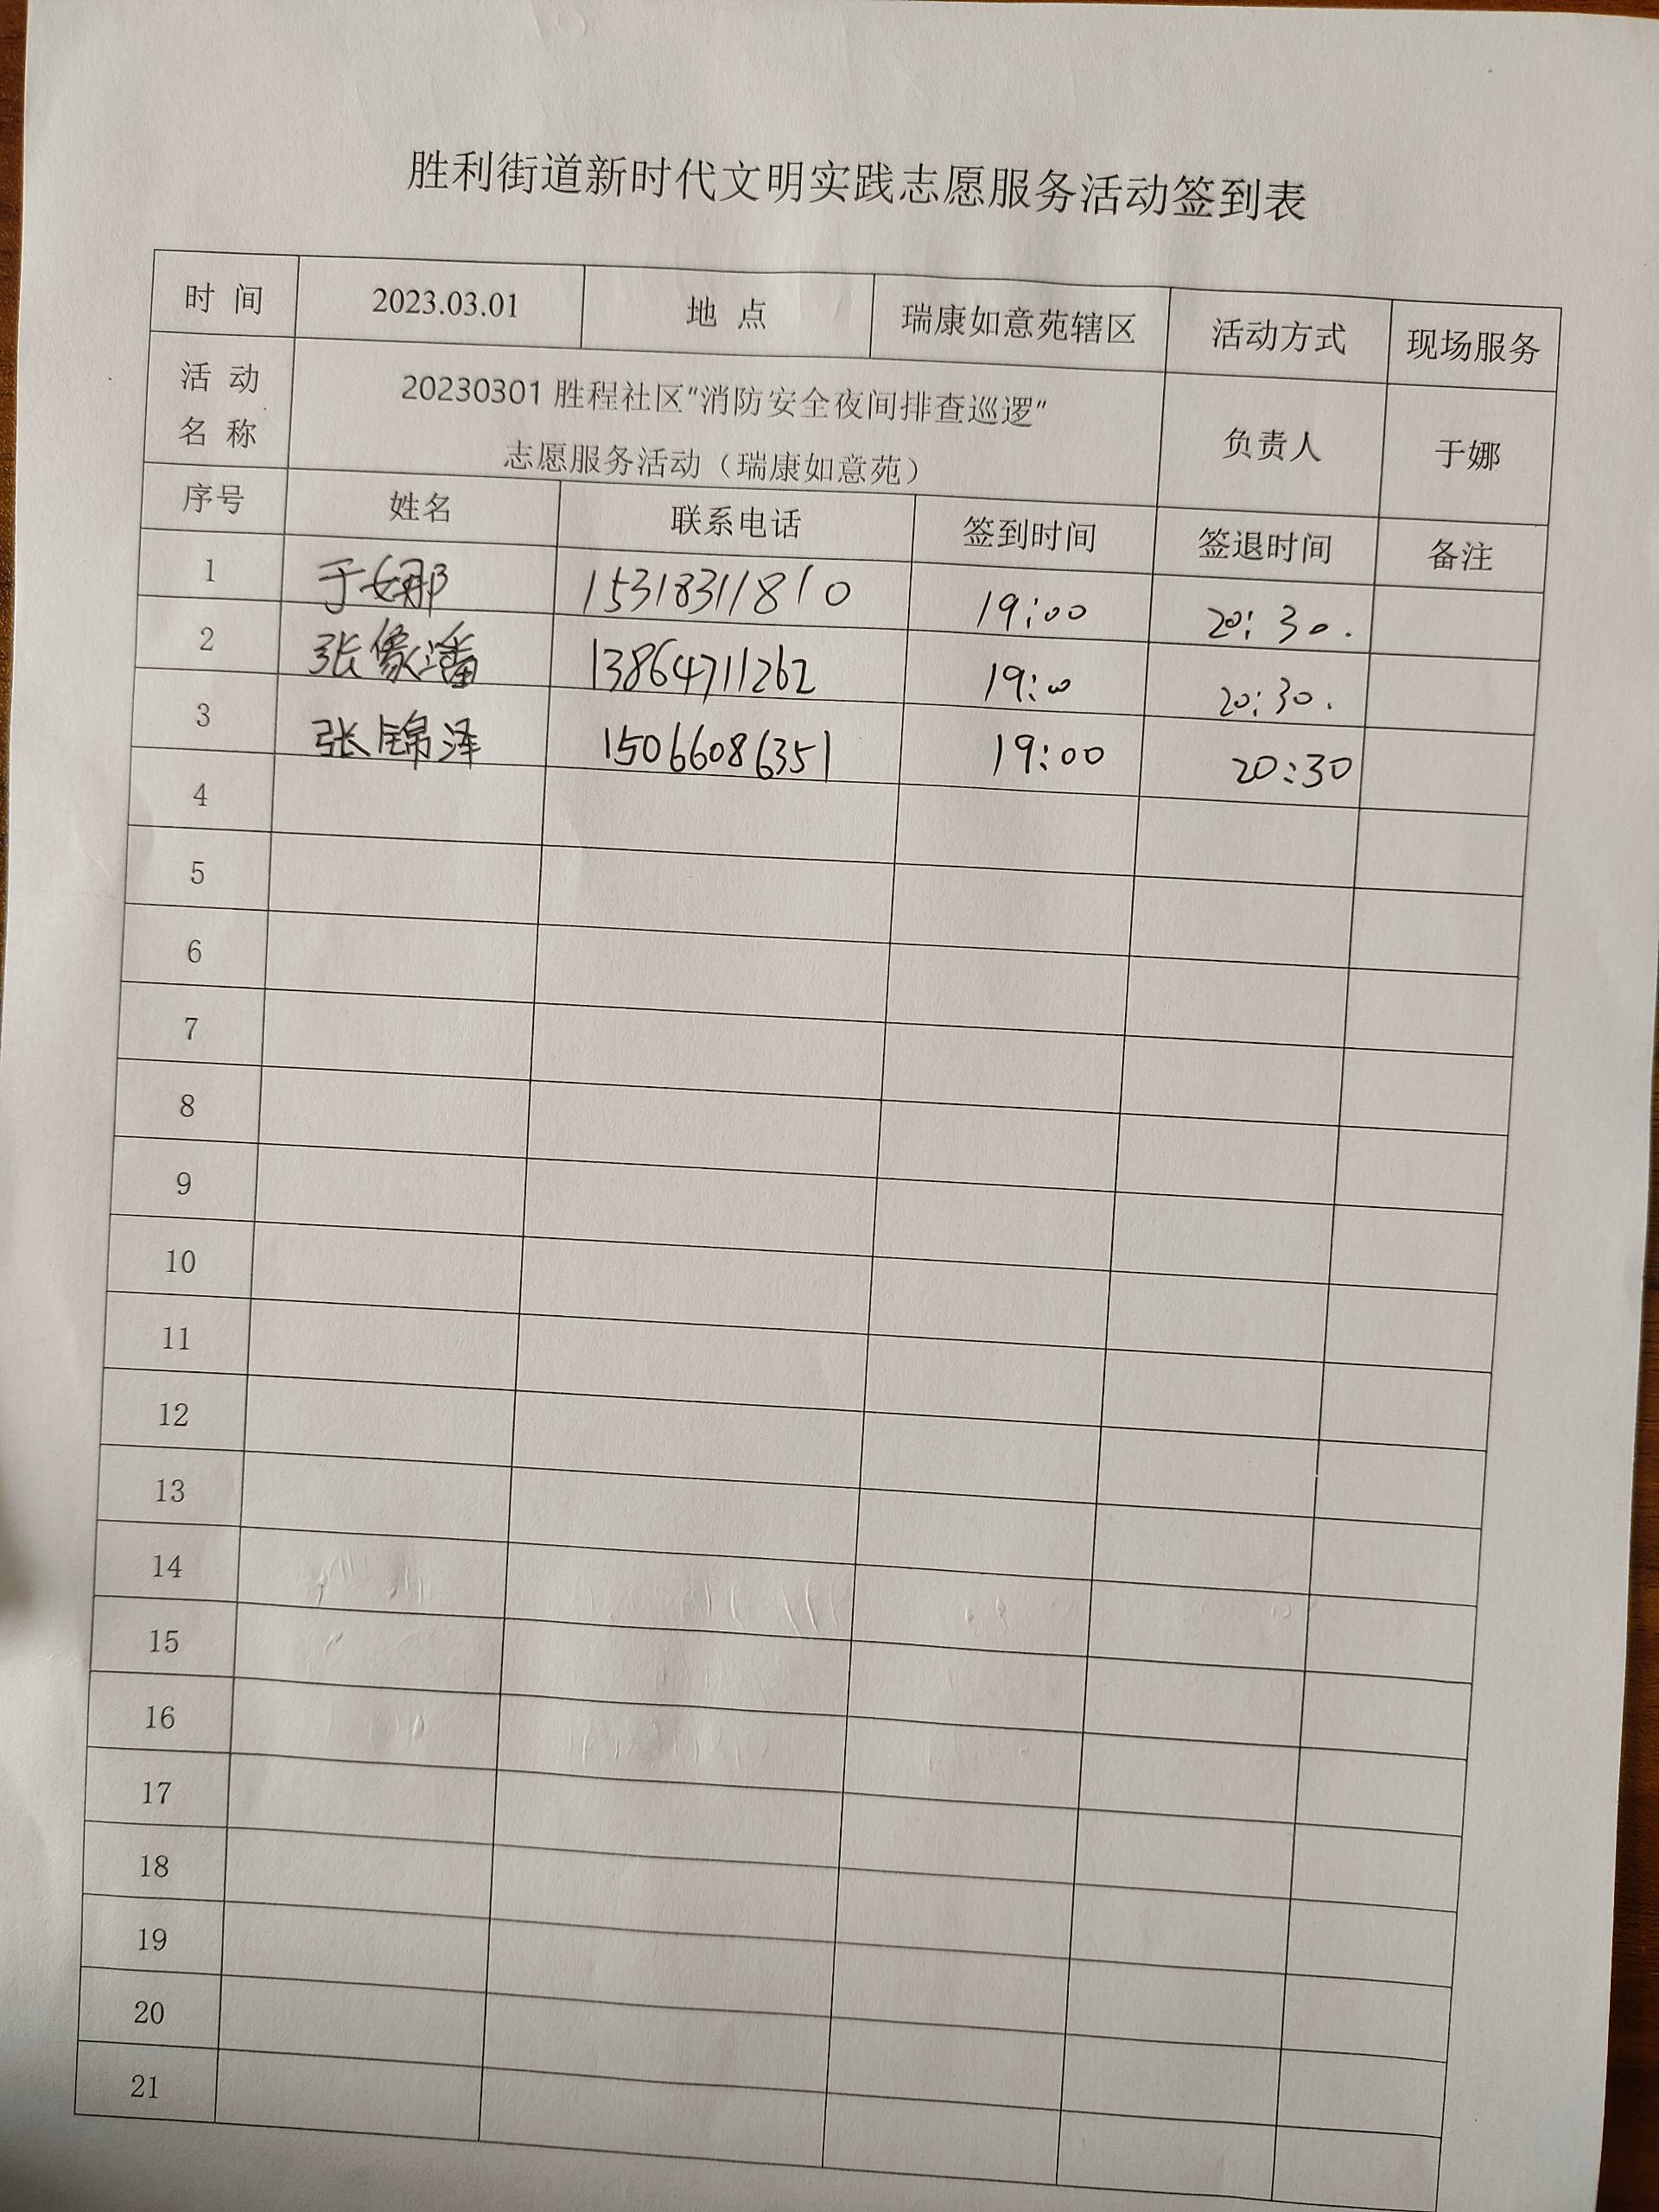 胜利街道新时代文明实践志愿服务活动签到表
时 间 2023.03.01 地 点 瑞康如意苑辖区 活动方式 现场服务
活 动 名 称 20230301 胜程社区“消防安全夜间排查巡逻”
志愿服务活动（瑞康如意苑） 负责人 于娜
序号 姓名 联系电话 签到时间 签退时间 备注
1 于娜 15318311810 19:00 20:30.
2 张 潘 13864711262 19:00 20:30.
3 张锦泽 15066086351 19:00 20:30
4
5
6
7
8
9
10
11
12
13
14
15
16
17
18
19
20
21